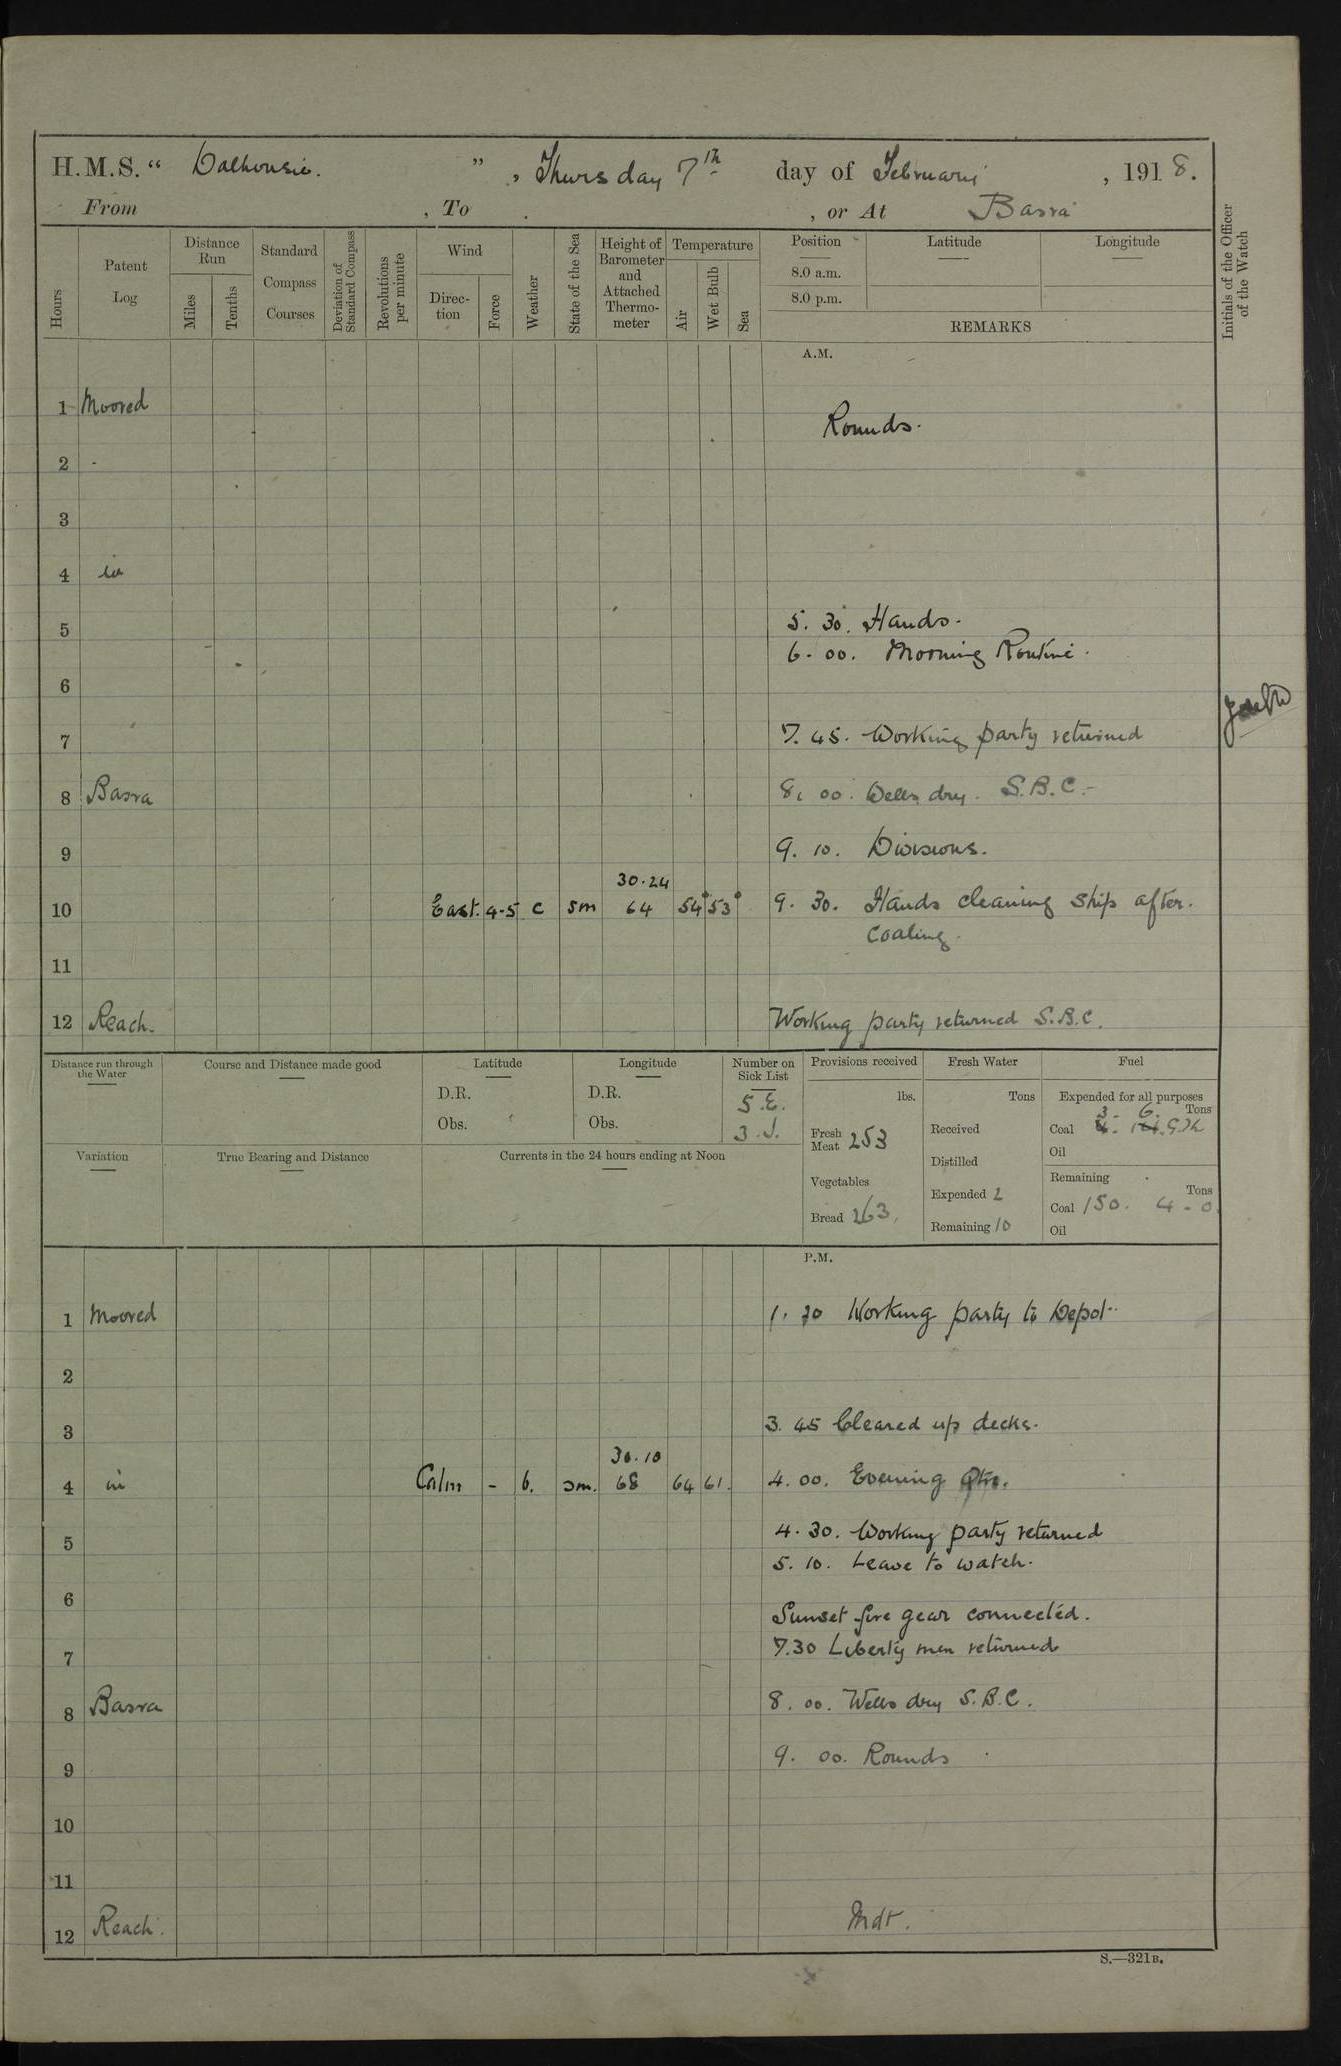 H.M.S. “ Dalhousie. ” , Thursday 7th day of February , 1918.
From , To , or At Basra
Hours
Patent Log
Distance Run
Miles
Tenths
Standard Compass Courses
Deviation of Standard Compass
Revolutions per minute
Wind
Direction
Force
Weather
State of the Sea
Height of Barometer and Attached Thermometer
Temperature
Air
Wet Bulb
Sea
Position
8.0 a.m.
8.0 p.m.
Latitude
Longitude
REMARKS
Initials of the Officer of the Watch
A.M.
1 Moored
Rounds.
2
3
4 in
5. 30. Hands.
5
6. 00. Morning Routine.
6
7. 45. Working party returned
7
8 Basra 8. 00. Wells dry. S.B.C.
9 9. 10. Divisions.
30.24
10 East. 4-5 c sm 64 54° 53° 9. 30. Hands cleaning ship after.
coaling.
11
12 Reach. Working party returned S.B.C.
Distance run through the Water
Course and Distance made good
Latitude
D.R.
Obs.
Longitude
D.R.
Obs.
Number on Sick List
5.E.
3.I.
Variation
True Bearing and Distance
Currents in the 24 hours ending at Noon
Provisions received
lbs.
Fresh Meat 253
Vegetables
Bread 263.
Fresh Water
Tons
Received
Distilled
Expended 2
Remaining 10
Fuel
Expended for all purposes
3. 6. Tons
Coal
Oil
Remaining
Tons
Coal 150. 4-0.
Oil
P.M.
1 Moored 1. 30 Working party to Depot.
2
3 3. 45 Cleared up decks.
30.10
4 in Calm - b. sm. 68 64 61. 4. 00. Evening Qtrs.
4. 30. Working party returned
5
5. 10. Leave to watch.
6
Sunset fire gear connected.
7.30 Liberty men returned
7
8 Basra 8. 00. Wells dry S.B.C.
9 9. 00. Rounds
10
11
12 Reach. Mdt.
S.—321B.